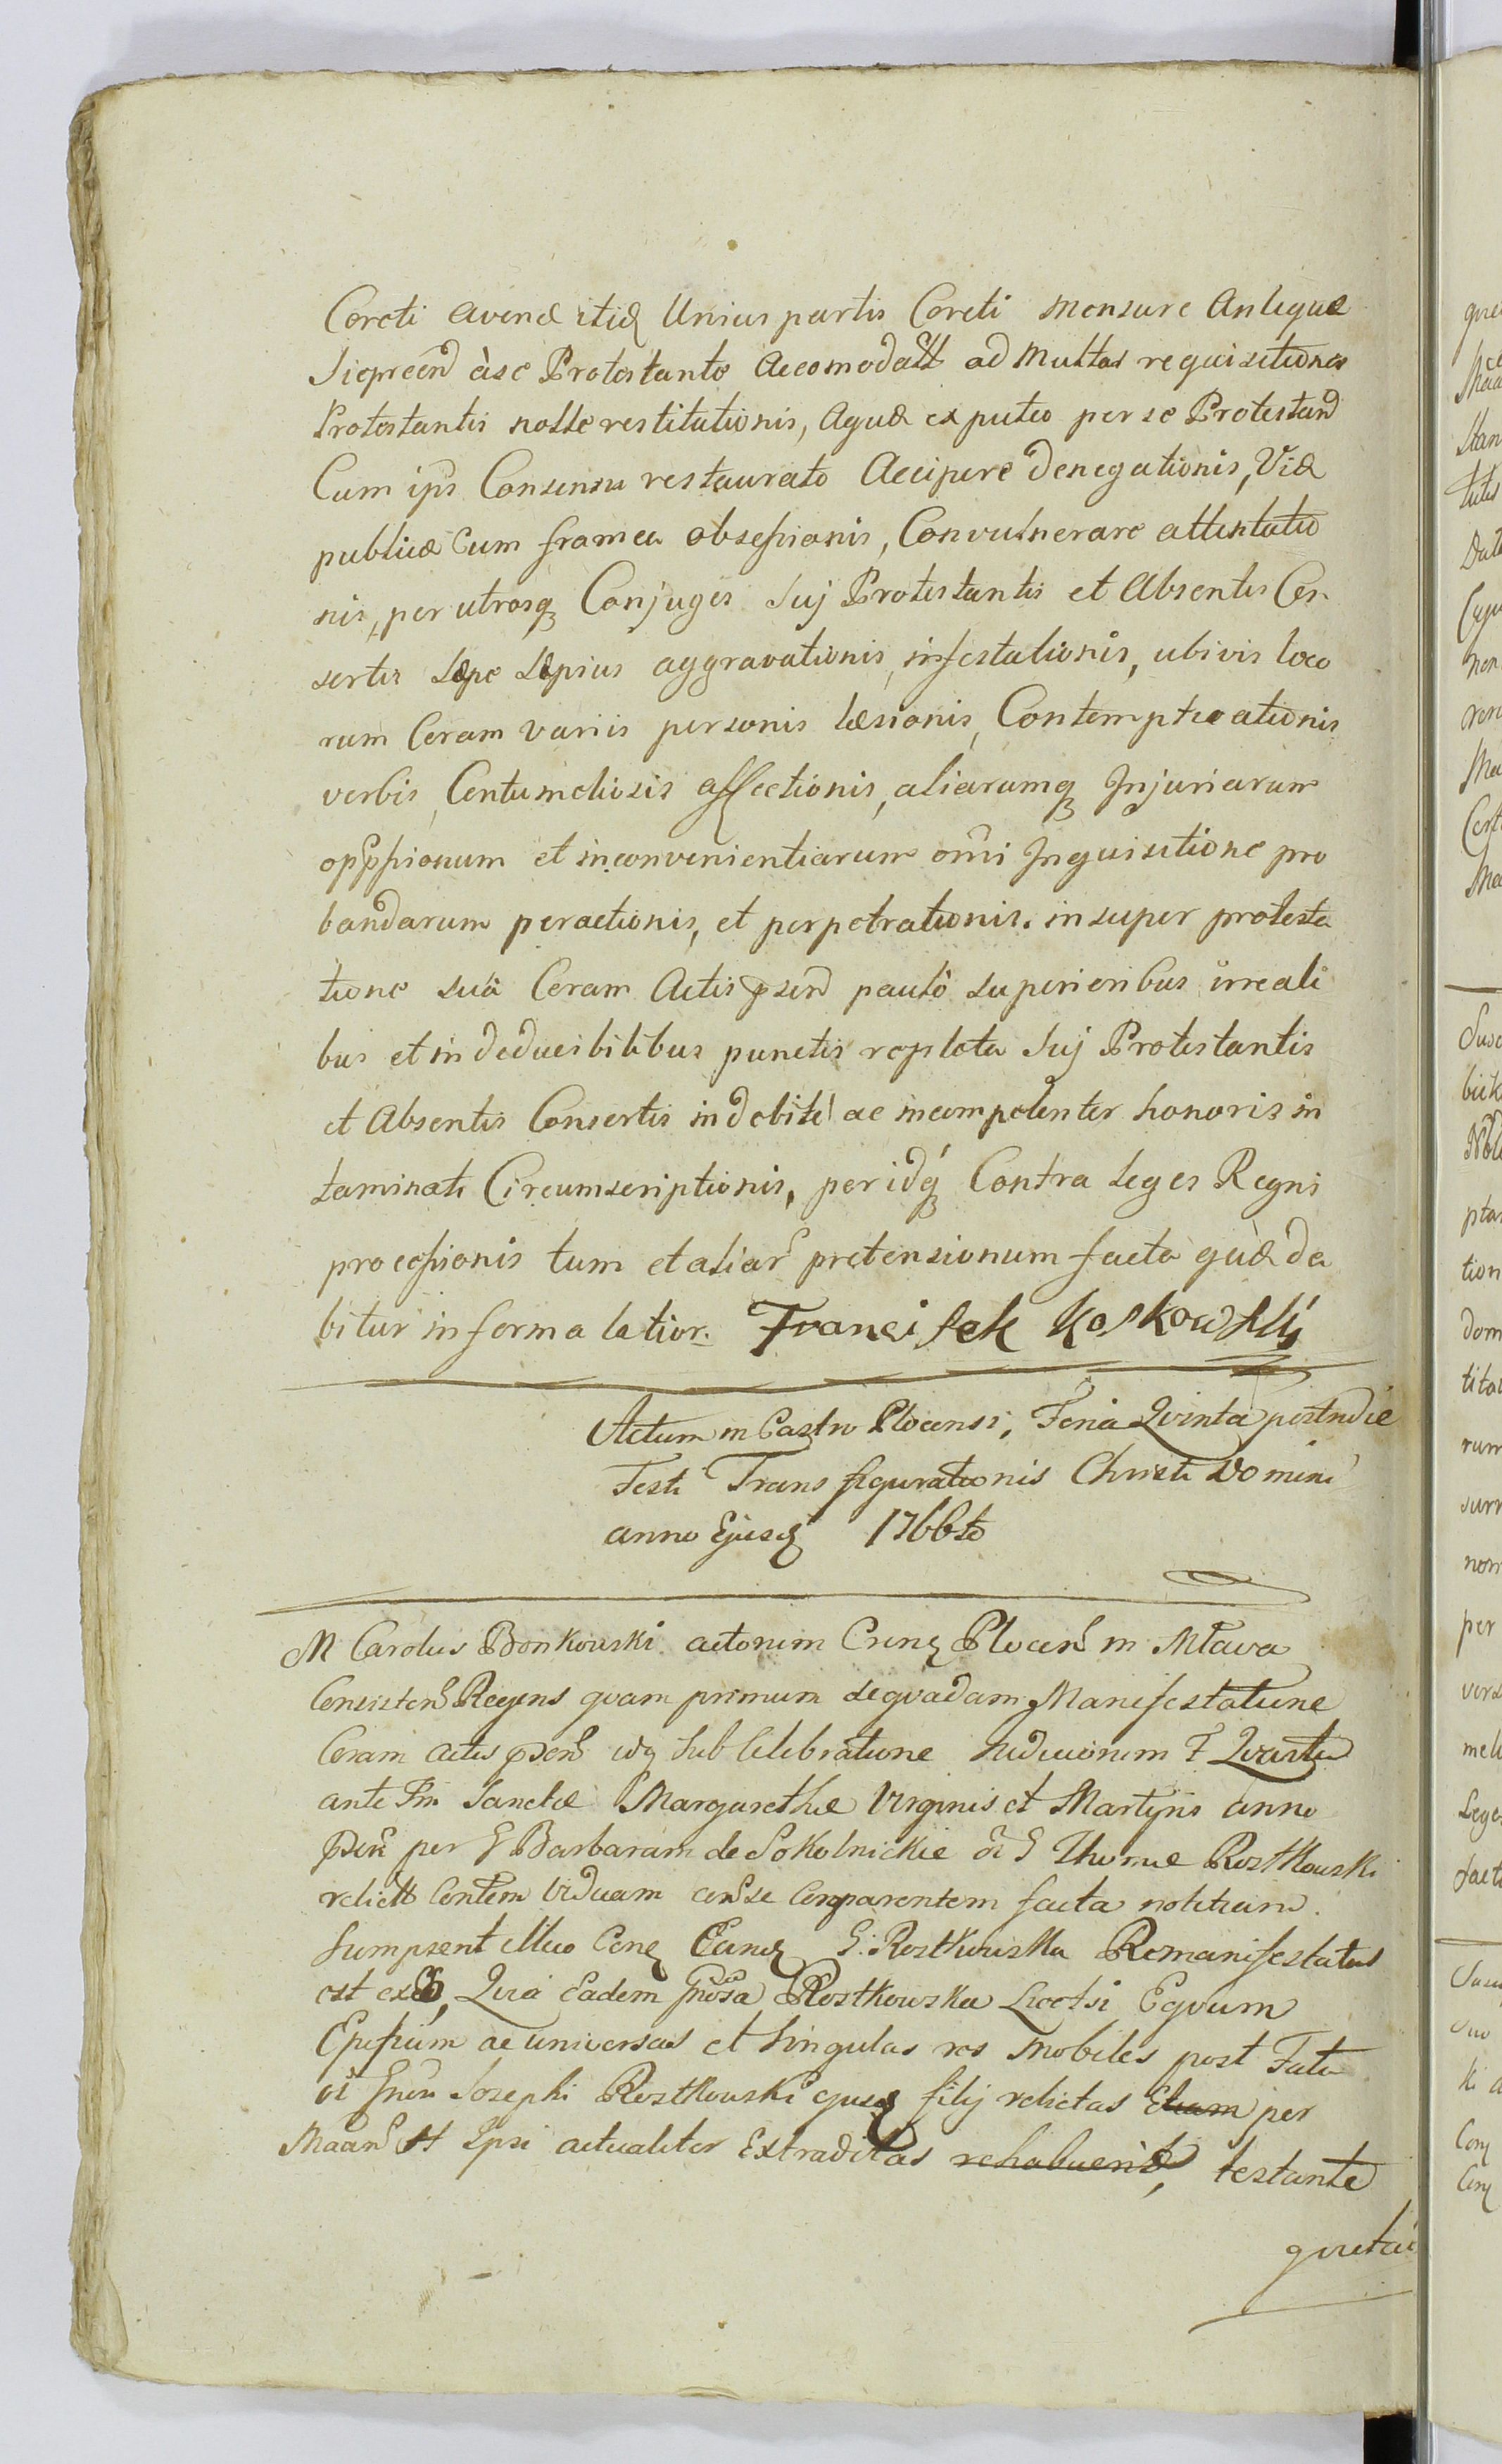 Coreti avenæ itidq Unius partis Coreti Mensure Antiquæ
Siepreem̄ àse Protestante Accomodatt ad Multas requisitiones
Protestantis nolle restitutionis, Aquæ ex puteo per se Protestan̄
Cum ips Consensu restaurato Accipere denegationis, Viæ
publicæ Cum framea obsessionis, Convulnerare attentatio
nis, per utrosq Conjuges Suj Protestantis et Absentis Con
sortis sæpe sæpius aggravationis, infestationis, ubivis loco
rum Coram variis personis læsionis, Contempticationis
verbis, Contumeliosis affectionis, aliarumq Injuriarum
opp̄ssionum et inconvenientiarum om̄i Inquisitione pro
bandarum peractionis, et perpetrationis. insuper protesta
tione suâ Coram Actis p̄sen̄ paulô superioribus irreali
bus et indeducibilibus punctis repleta Suj Protestantis
et Absentis Consortis indebité ac incompetenter honoris in
taminati Circumscriptionis, per idq Contra Leges Regni
processionis tum et aliar̄ pretensionum facta quæ da
bitur in forma latior. Francisek Koskowskÿ
Actum in Castro Plocensi, Feria Qvinta postridie
Festi Transfigurationis Christi Domini
anno Ejusdq 1766to
M Carolus Bonkowski actorum Crenq Plocen̄ in Mława
Consisten̄ Regens qvam primum de qvadam Manifestatione
Coram actis p̄sen̄ idq sub Celebratione Iudiciorum F Qvarta
ante Fm̄ Sanctæ Margarethæ Virginis et Martyris anno
p̄sen̄ per G Barbaram de Sokolnickie ōi G Thomæ Rostkowski
relictt Contem Viduam con̄se Comparentem facta notitiam
Sumpsent illico Conq Eandq G. Rostkowska Remanifestatus
est ex Eo, Qvia Eadem Gn̄osa Rostkowska Licetsi Eqvum
Ephipium ac universas et Singulas res Mobiles post Fata
oi Gn̄osi Josephi Rostkowski ejusdq filij relictas Etiam per
Maan̄ tt Ipsi actualiter Extraditas rehabuerit, testante
qvietaõ